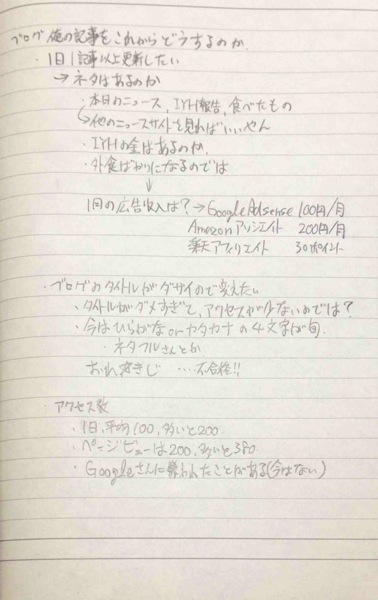 ブログ 俺の記事をこれからどうするのか
・1日1記事以上更新したい
→ネタはあるのか
・本日のニュース、IYH報告、食べたもの
↳他のニュースサイトを見ればいいやん
・IYHの金はあるのか
・外食ばかりになるのでは
↓
1月の広告収入は?→Google Adsense 100円/月
Amazonアソシエイト 200円/月
楽天アフィリエイト 30ポイント
・ブログのタイトルがダサイので変えたい
・タイトルがダメすぎて、アクセスが少ないのでは?
・今はひらがなorカタカナの4文字が旬
・ネタフルさんとか
おれ きじ …不合格!!
アクセス数
・1日、平均100、多いと200
・ページビューは200、多いと380
・Googleさんに嫌われたことがある(今はない)